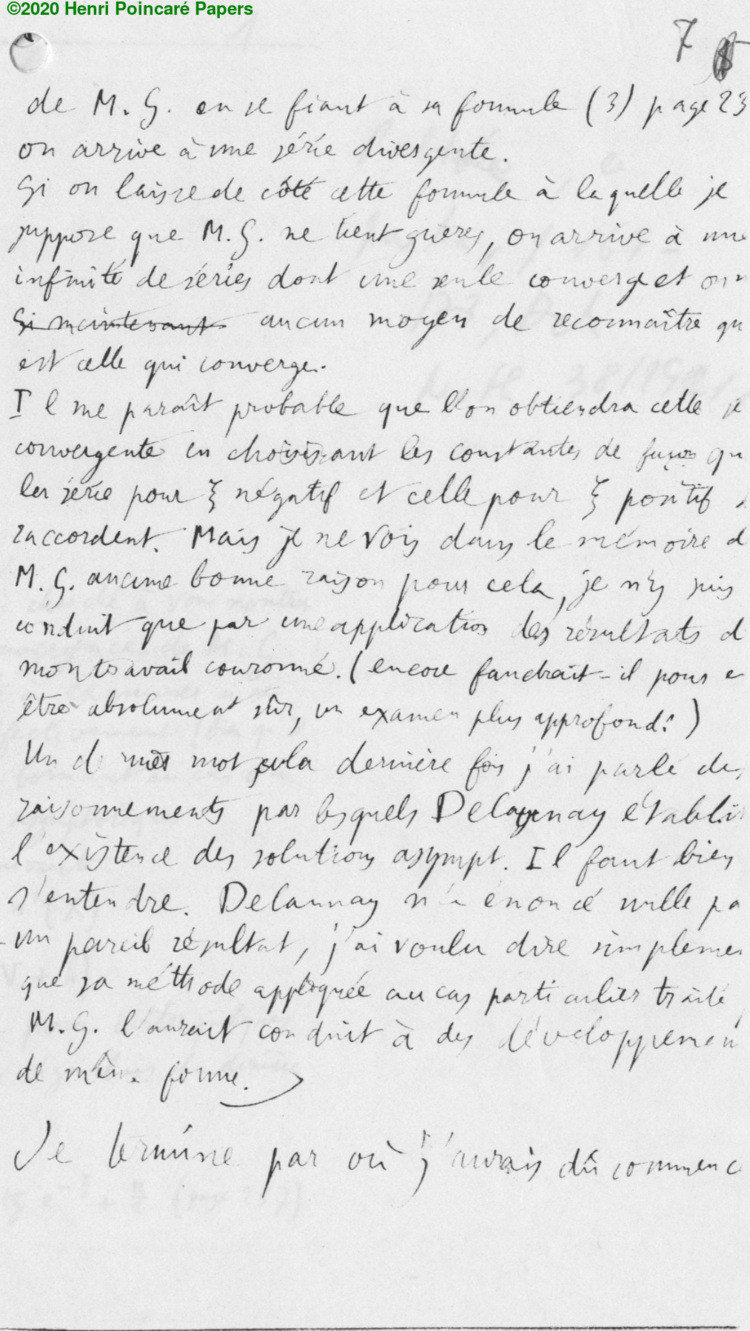 ©2020 Henri Poincaré Papers
7
de M. G. en se fiant à sa formule (3) page 23
on arrive à une série divergente.
Si on laisse de côté cette formule à laquelle je
suppose que M.G. ne tient guères, on arrive à une
infinité de séries dont une seule converge et on
Si maintenant aucun moyen de reconnaître qu
est celle qui converge.
Il me paraît probable que l'on obtiendra cette
convergente en choisissant les constantes de façon qu
les série pour ξ négatif et celle pour ξ positif
raccordent. Mais je ne vois dans le mémoire d
M. G. aucune bonne raison pour cela, je n'y suis
conduit que par une application des résultats d
mon travail couronné. (encore faudrait-il pour e
être absolument sûr, un examen plus approfondi)
Un de mes mot la dernière fois j'ai parlé de
raisonnements par lesquels Delaunay établi
l'existence des solutions asympt. Il faut bien
s'entendre. Delaunay n'a énoncé nulle pa
un pareil résultat, j'ai voulu dire simplemen
que sa méthode appliquée au cas particulier traité
M.G. l'aurait conduit à des développemen
de même forme.
Je termine par où j'aurais dû commenc